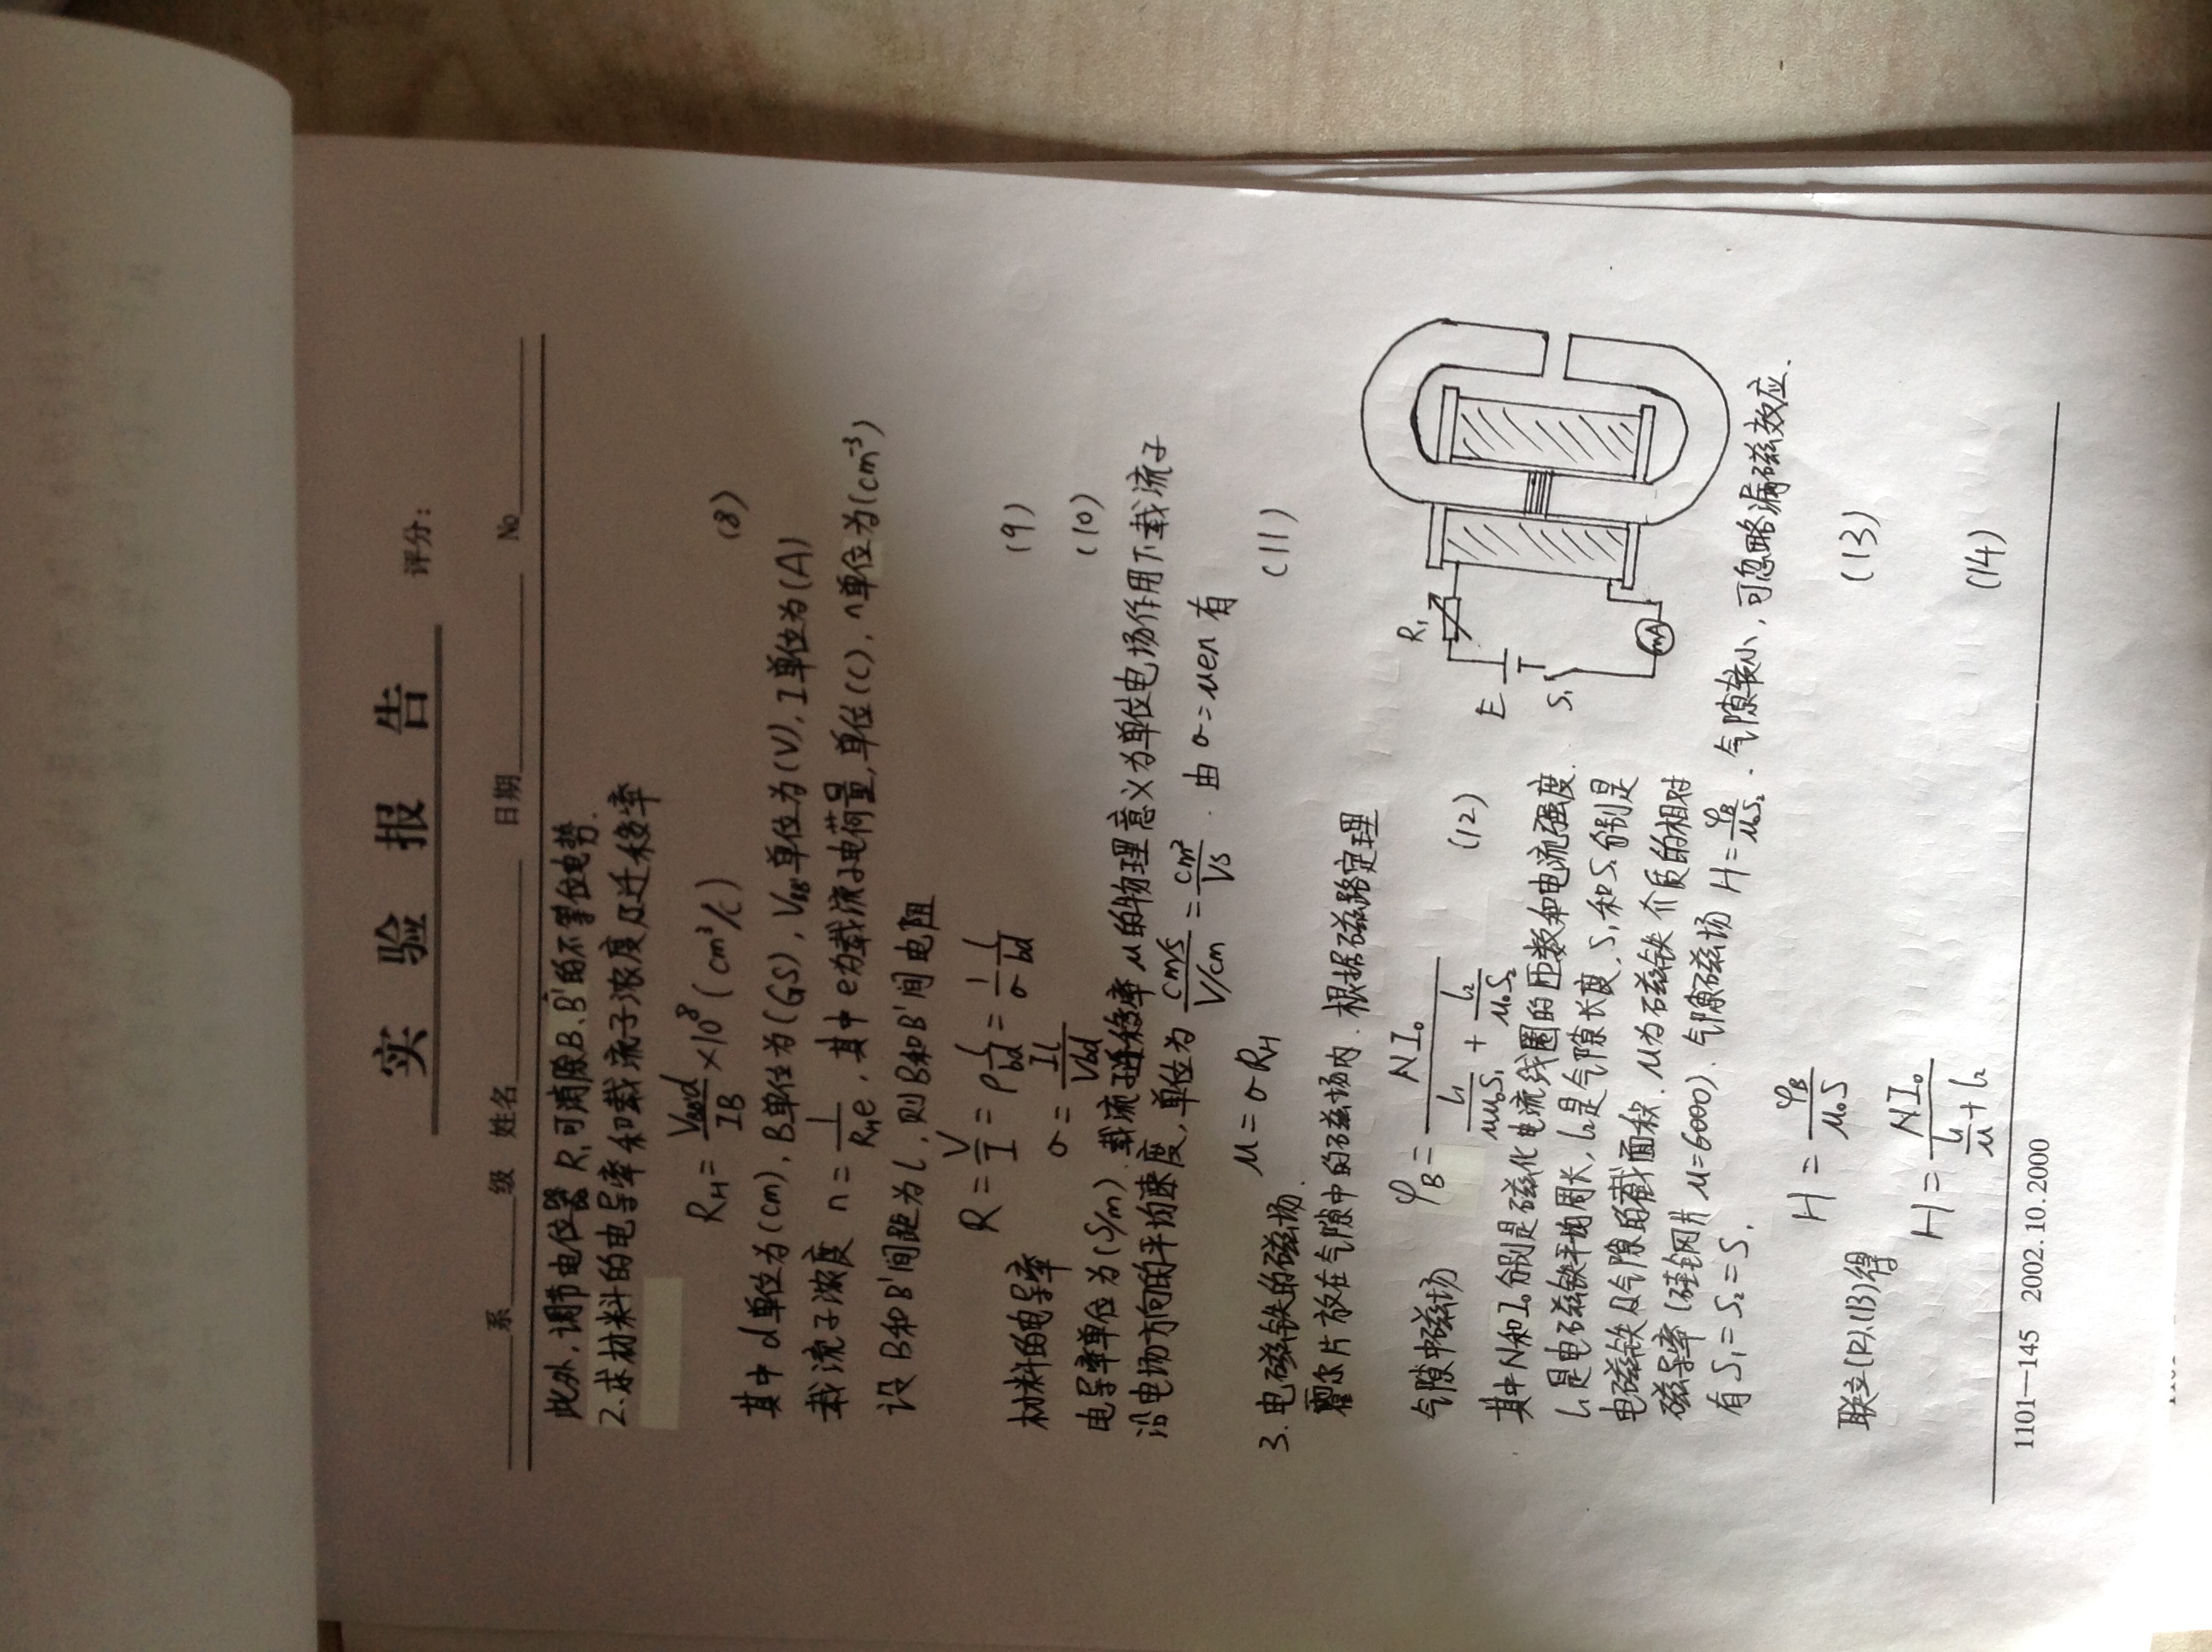 实 验 报 告 评分:
系 级 姓名 日期 No
此外,调节电位器 R₁可消除B、B'的不等位电势.
2.求材料的电导率和载流子浓度及迁移率
R_H = V_BB'd / IB ×10⁸ (cm³/c) (8)
其中 d单位为(cm), B单位为(GS), V_BB'单位为(V), I单位为(A)
载流子浓度 n = 1 / R_H e, 其中e为载流子电荷量,单位(C), n单位为(cm⁻³)
设 B和B'间距为l, 则B和B'间电阻
R = V/I = ρ l/bd = 1/σ l/bd (9)
材料的电导率 σ = Il / Vbd (10)
电导率单位为(S/m). 载流子迁移率 μ的物理意义为单位电场作用下载流子
沿电场方向的平均速度,单位为 cm/s / V/cm = cm² / Vs . 由 σ=μen 有
μ = σR_H (11)
3.电磁铁的磁场.
霍尔片放在气隙中的磁场内. 根据磁路定理
气隙中磁场 φ_B = NI₀ / (l₁/μμ₀S₁ + l₂/μ₀S₂) (12)
其中N和I₀分别是磁化电流线圈的匝数和电流强度.
l₁是电磁铁平均周长, l₂是气隙长度. S₁和S₂分别是
电磁铁及气隙的截面积. μ为磁铁介质的相对
磁导率(硅钢片 μ=6000). 气隙磁场 H = φ_B / μ₀S₂ . 气隙较小, 可忽略漏磁效应.
有 S₁=S₂=S.
H = φ_B / μ₀S (13)
联立(12)、(13)得
H = NI₀ / (l₁/μ + l₂) (14)
R₁
E
S₁
mA
1101—145 2002.10.2000